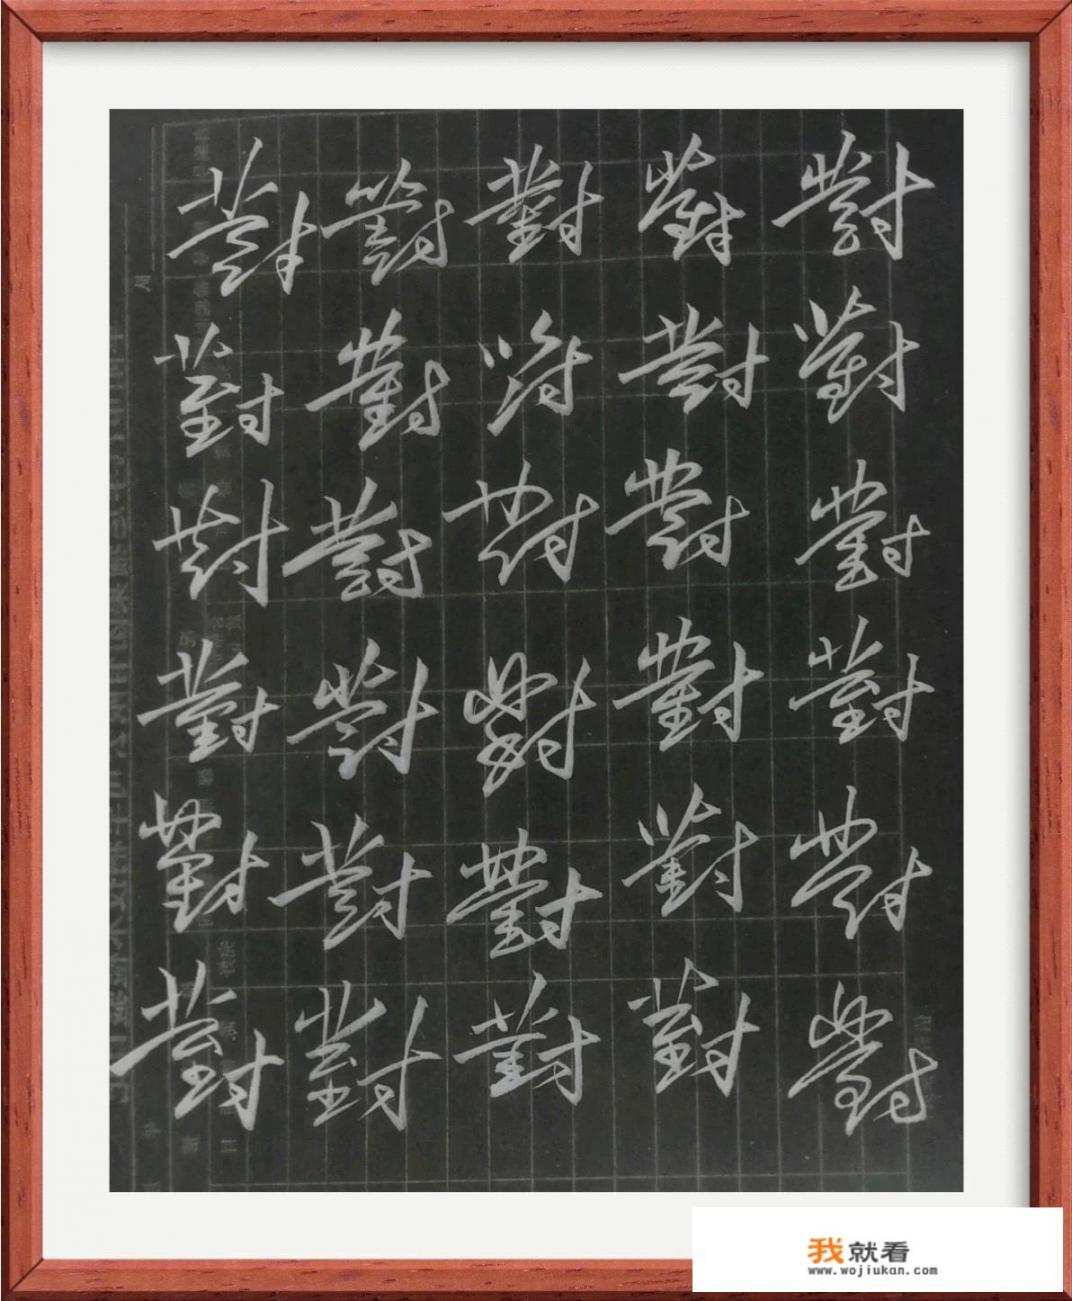 對 對 對 對 對
對 對 對 對 對
對 對 對 對 對
對 對 對 對 對
對 對 對 對 對
對 對 對 對 對
我就看
www.wojiukan.com